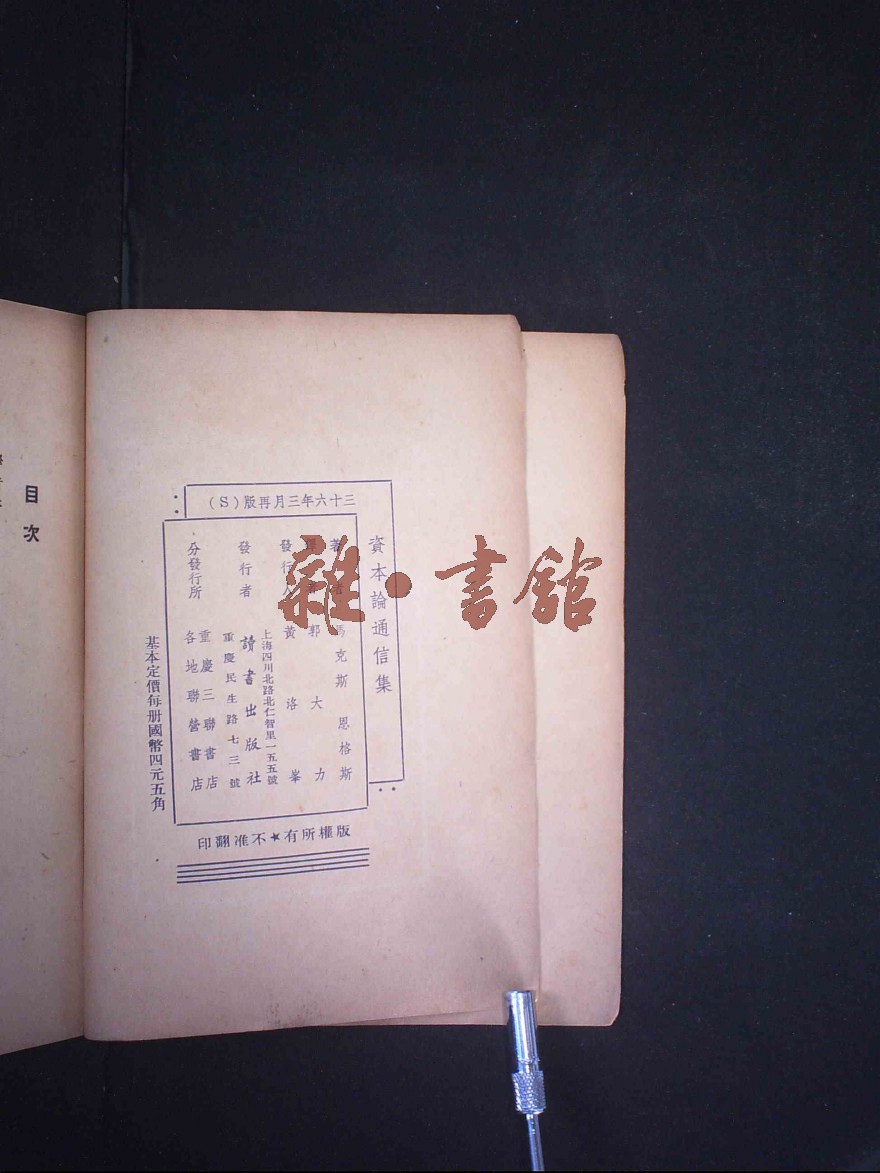 三十六年三月再版(S)
資本論通信集
著者 馬克斯 恩格斯
譯者 郭大力
發行人 黃洛峯
上海四川北路北仁智里一五五號
發行者 讀書出版社
重慶民生路七三號
分發行所 重慶三聯書店
各地聯營書店
基本定價每册國幣四元五角
版權所有★不准翻印
目次
雜·書館